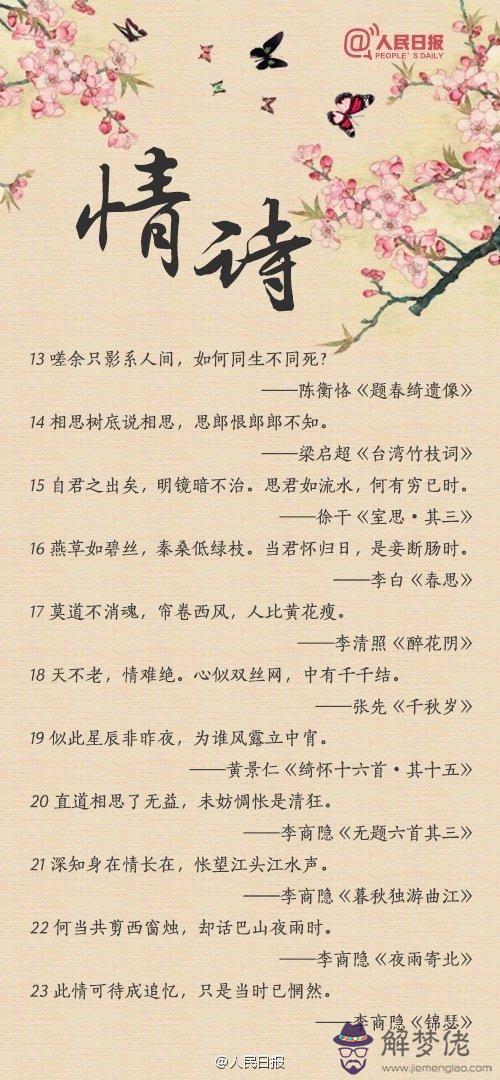 人民日报
PEOPLE'S DAILY
情诗
13 嗟余只影系人间，如何同生不同死？
——陈衡恪《题春绮遗像》
14 相思树底说相思，思郎恨郎郎不知。
——梁启超《台湾竹枝词》
15 自君之出矣，明镜暗不治。思君如流水，何有穷已时。
——徐干《室思·其三》
16 燕草如碧丝，秦桑低绿枝。当君怀归日，是妾断肠时。
——李白《春思》
17 莫道不消魂，帘卷西风，人比黄花瘦。
——李清照《醉花阴》
18 天不老，情难绝。心似双丝网，中有千千结。
——张先《千秋岁》
19 似此星辰非昨夜，为谁风露立中宵。
——黄景仁《绮怀十六首·其十五》
20 直道相思了无益，未妨惆怅是清狂。
——李商隐《无题六首其三》
21 深知身在情长在，怅望江头江水声。
——李商隐《暮秋独游曲江》
22 何当共剪西窗烛，却话巴山夜雨时。
——李商隐《夜雨寄北》
23 此情可待成追忆，只是当时已惘然。
——李商隐《锦瑟》
@人民日报
解梦佬
www.jiemenglao.com